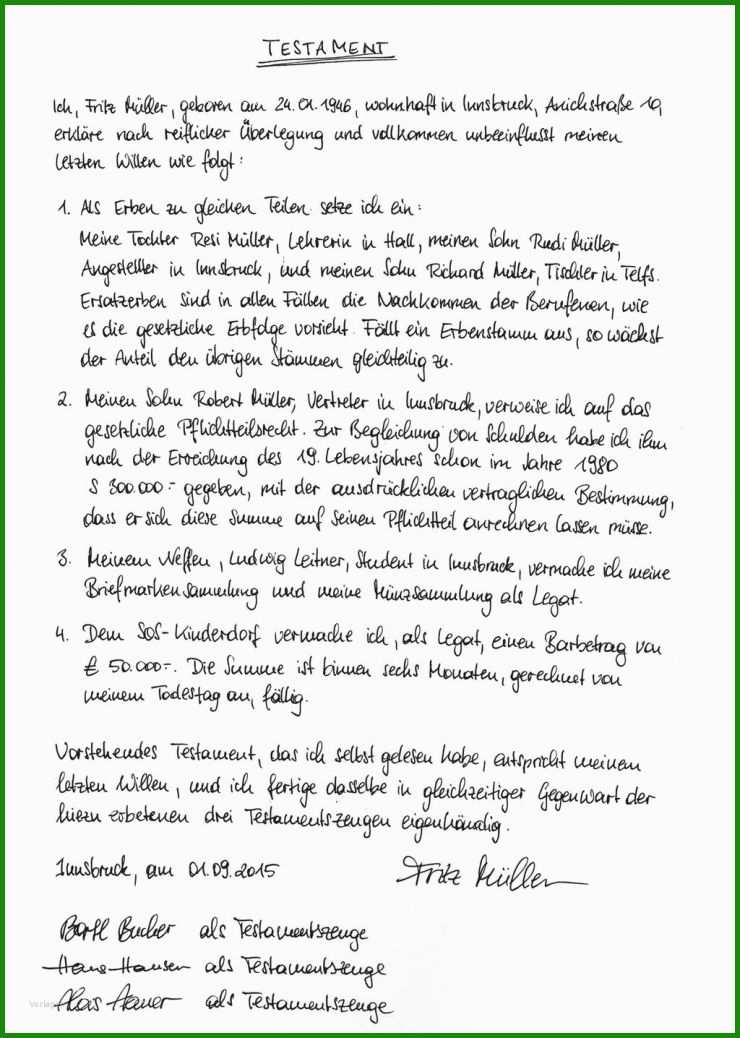 TESTAMENT
Ich, Fritz Müller, geboren am 24.01.1946, wohnhaft in Innsbruck, Anichstraße 10,
erkläre nach reiflicher Überlegung und vollkommen unbeeinflusst meinen
letzten Willen wie folgt:
1. Als Erben zu gleichen Teilen setze ich ein:
Meine Tochter Resi Müller, Lehrerin in Hall, meinen Sohn Rudi Müller,
Angestellter in Innsbruck, und meinen Sohn Richard Müller, Tischler in Telfs.
Ersatzerben sind in allen Fällen die Nachkommen der Berufenen, wie
es die gesetzliche Erbfolge vorsieht. Fällt ein Erbenstamm aus, so wächst
der Anteil den übrigen Stämmen gleichteilig zu.
2. Meinen Sohn Robert Müller, Vertreter in Innsbruck, verweise ich auf das
gesetzliche Pflichtteilsrecht. Zur Begleichung von Schulden habe ich ihm
nach der Erreichung des 19. Lebensjahres schon im Jahre 1980
S 300.000.- gegeben, mit der ausdrücklichen vertraglichen Bestimmung,
dass er sich diese Summe auf seinen Pflichtteil anrechnen lassen müsse.
3. Meinem Neffen, Ludwig Leitner, Student in Innsbruck, vermache ich meine
Briefmarkensammlung und meine Münzsammlung als Legat.
4. Dem SOS-Kinderdorf vermache ich, als Legat, einen Barbetrag von
€ 50.000.-. Die Summe ist binnen sechs Monaten, gerechnet von
meinem Todestag an, fällig.
Vorstehendes Testament, das ich selbst gelesen habe, entspricht meinem
letzten Willen, und ich fertige dasselbe in gleichzeitiger Gegenwart der
hiezu erbetenen drei Testamentszeugen eigenhändig.
Innsbruck, am 01.09.2015 Fritz Müller
Bartl Bucher als Testamentszeuge
Hans Hausen als Testamentszeuge
Alois als Testamentszeuge
Verlag